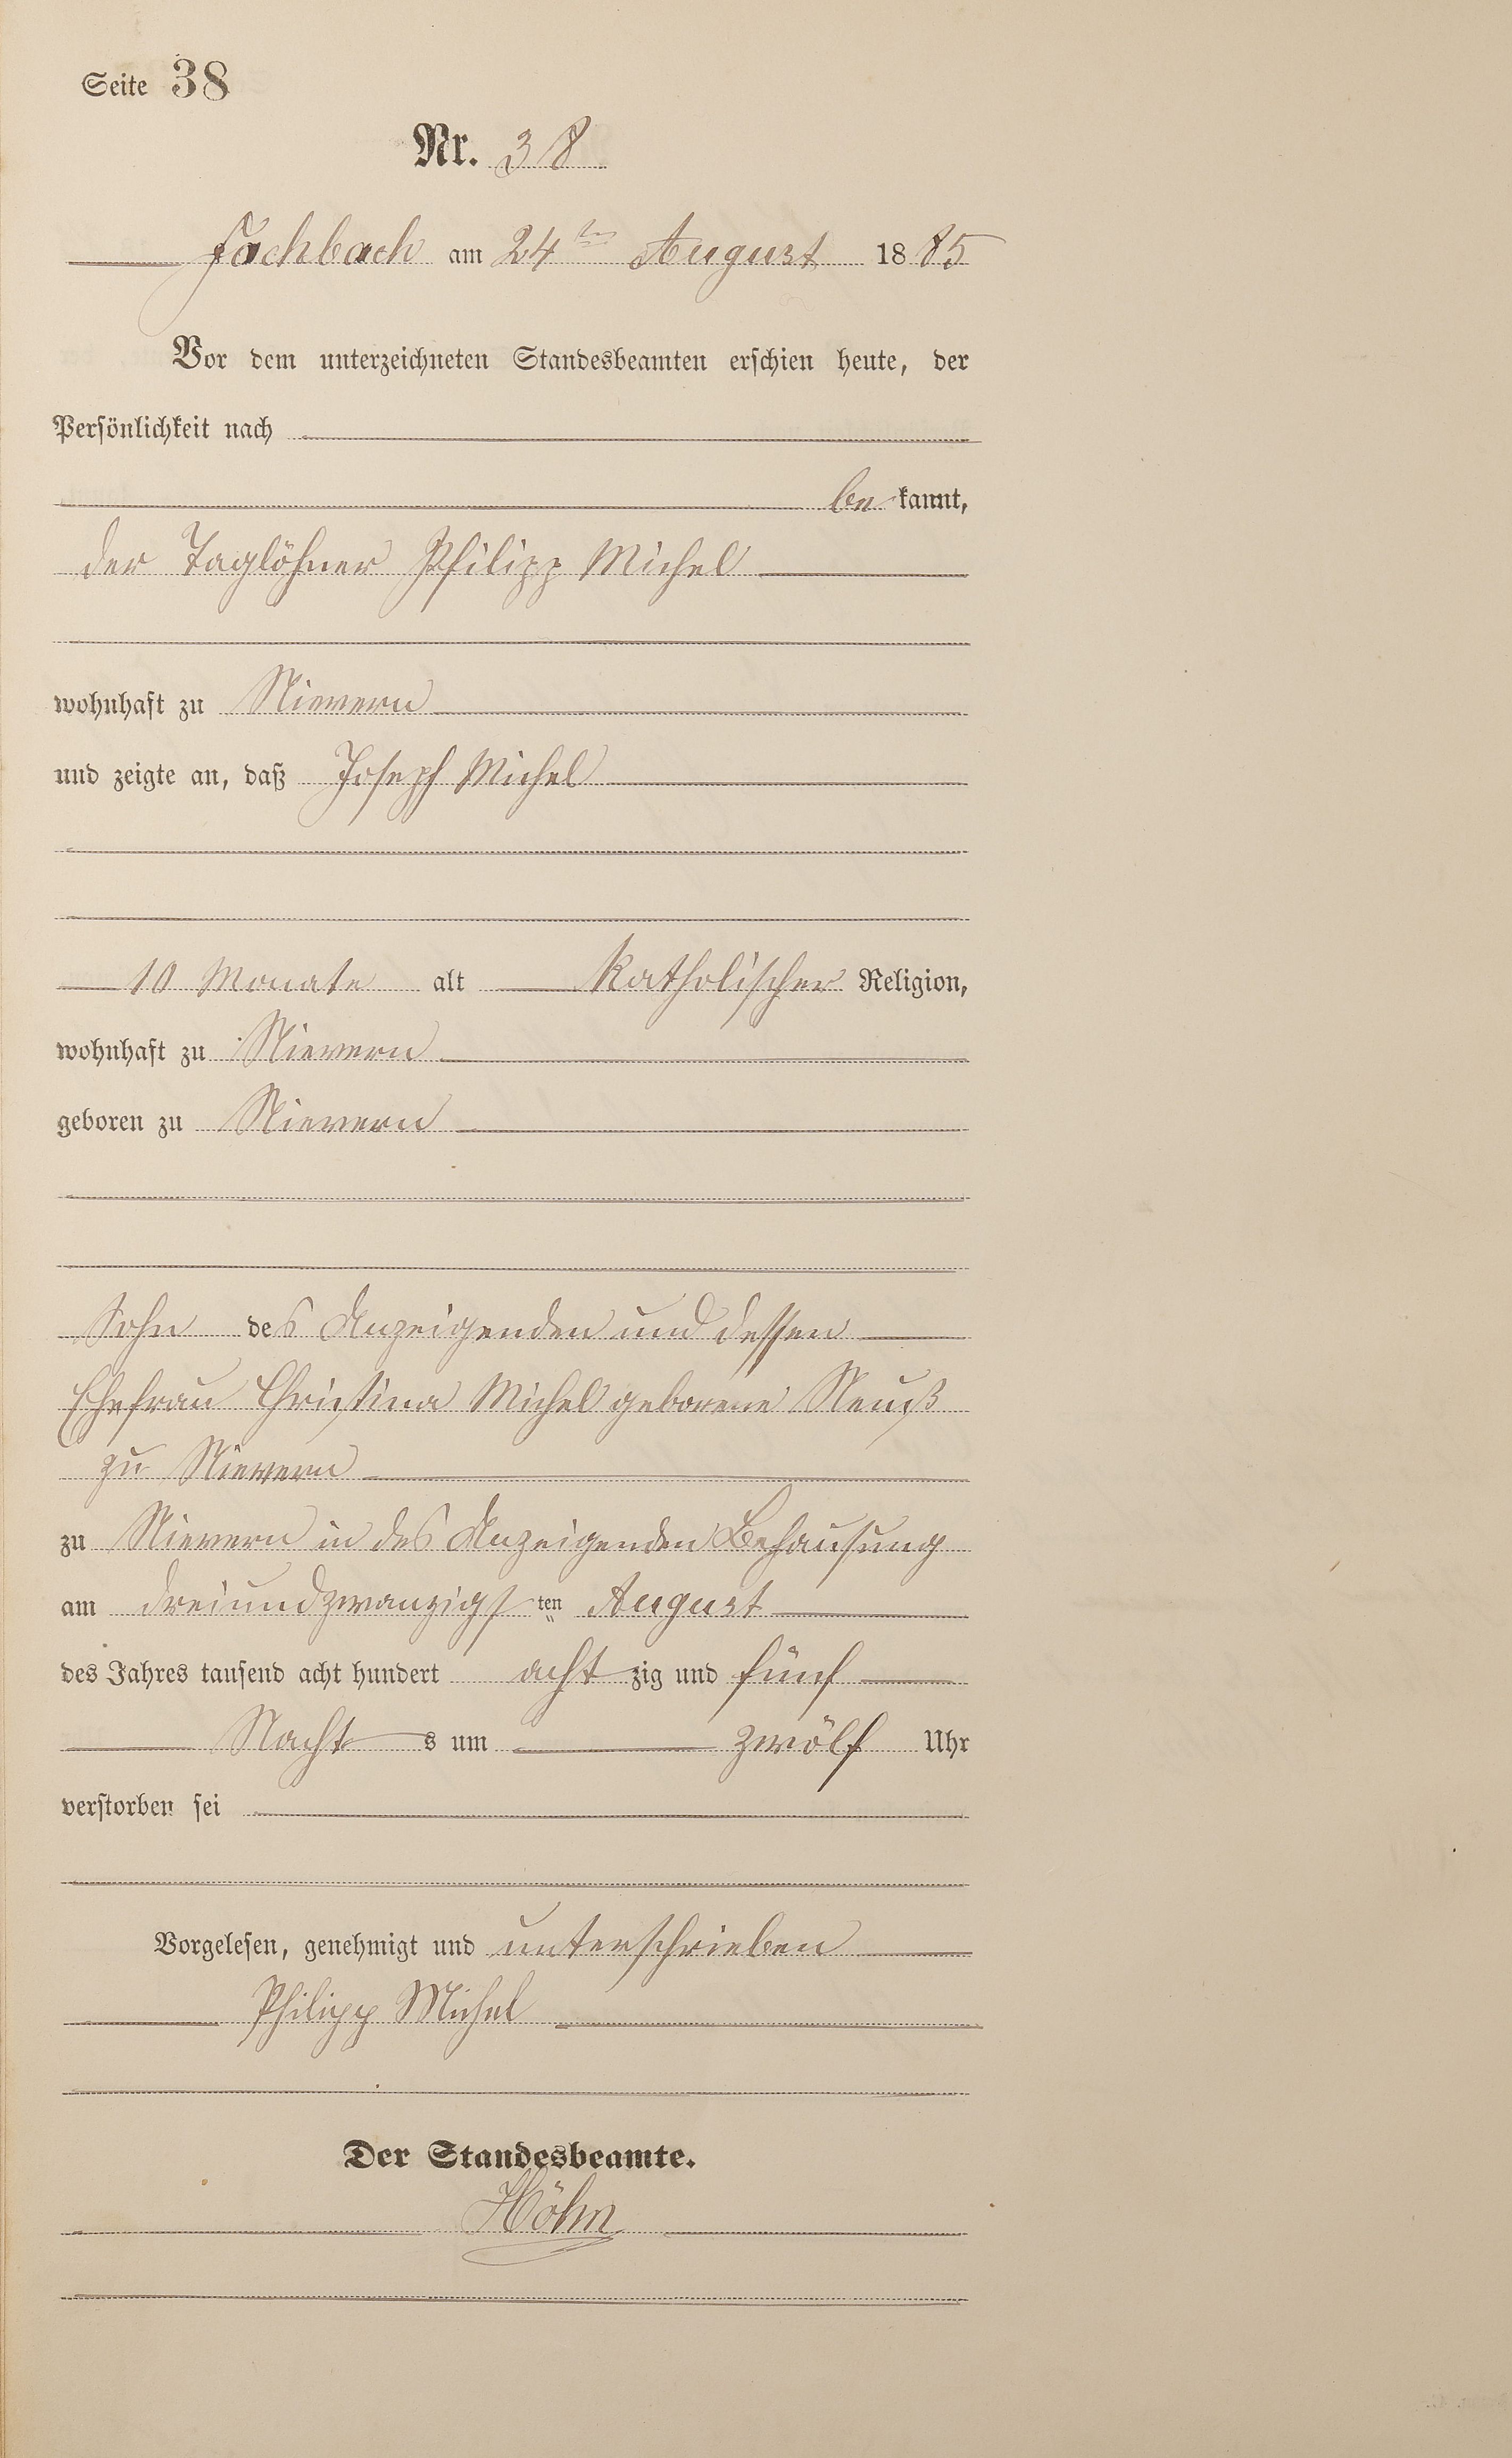 Seite 38
Nr. 38
Fachbach am 24ten August 1885
Vor dem unterzeichneten Standesbeamten erschien heute, der
Persönlichkeit nach
bekannt,
der Taglöhner Philipp Michel
wohnhaft zu Nievern
und zeigte an, daß Joseph Michel
10 Monate alt katholischer Religion,
wohnhaft zu Nievern
geboren zu Nievern
Sohn des Anzeigenden und dessen
Ehefrau Christina Michel geborene Neuß
zu Nievern
zu Nievern in des Anzeigenden Behausung
am dreiundzwanzigsten August
des Jahres tausend acht hundert achtzig und fünf
Nachts um zwölf Uhr
verstorben sei
Vorgelesen, genehmigt und unterschrieben
Philipp Michel
Der Standesbeamte.
Höhn